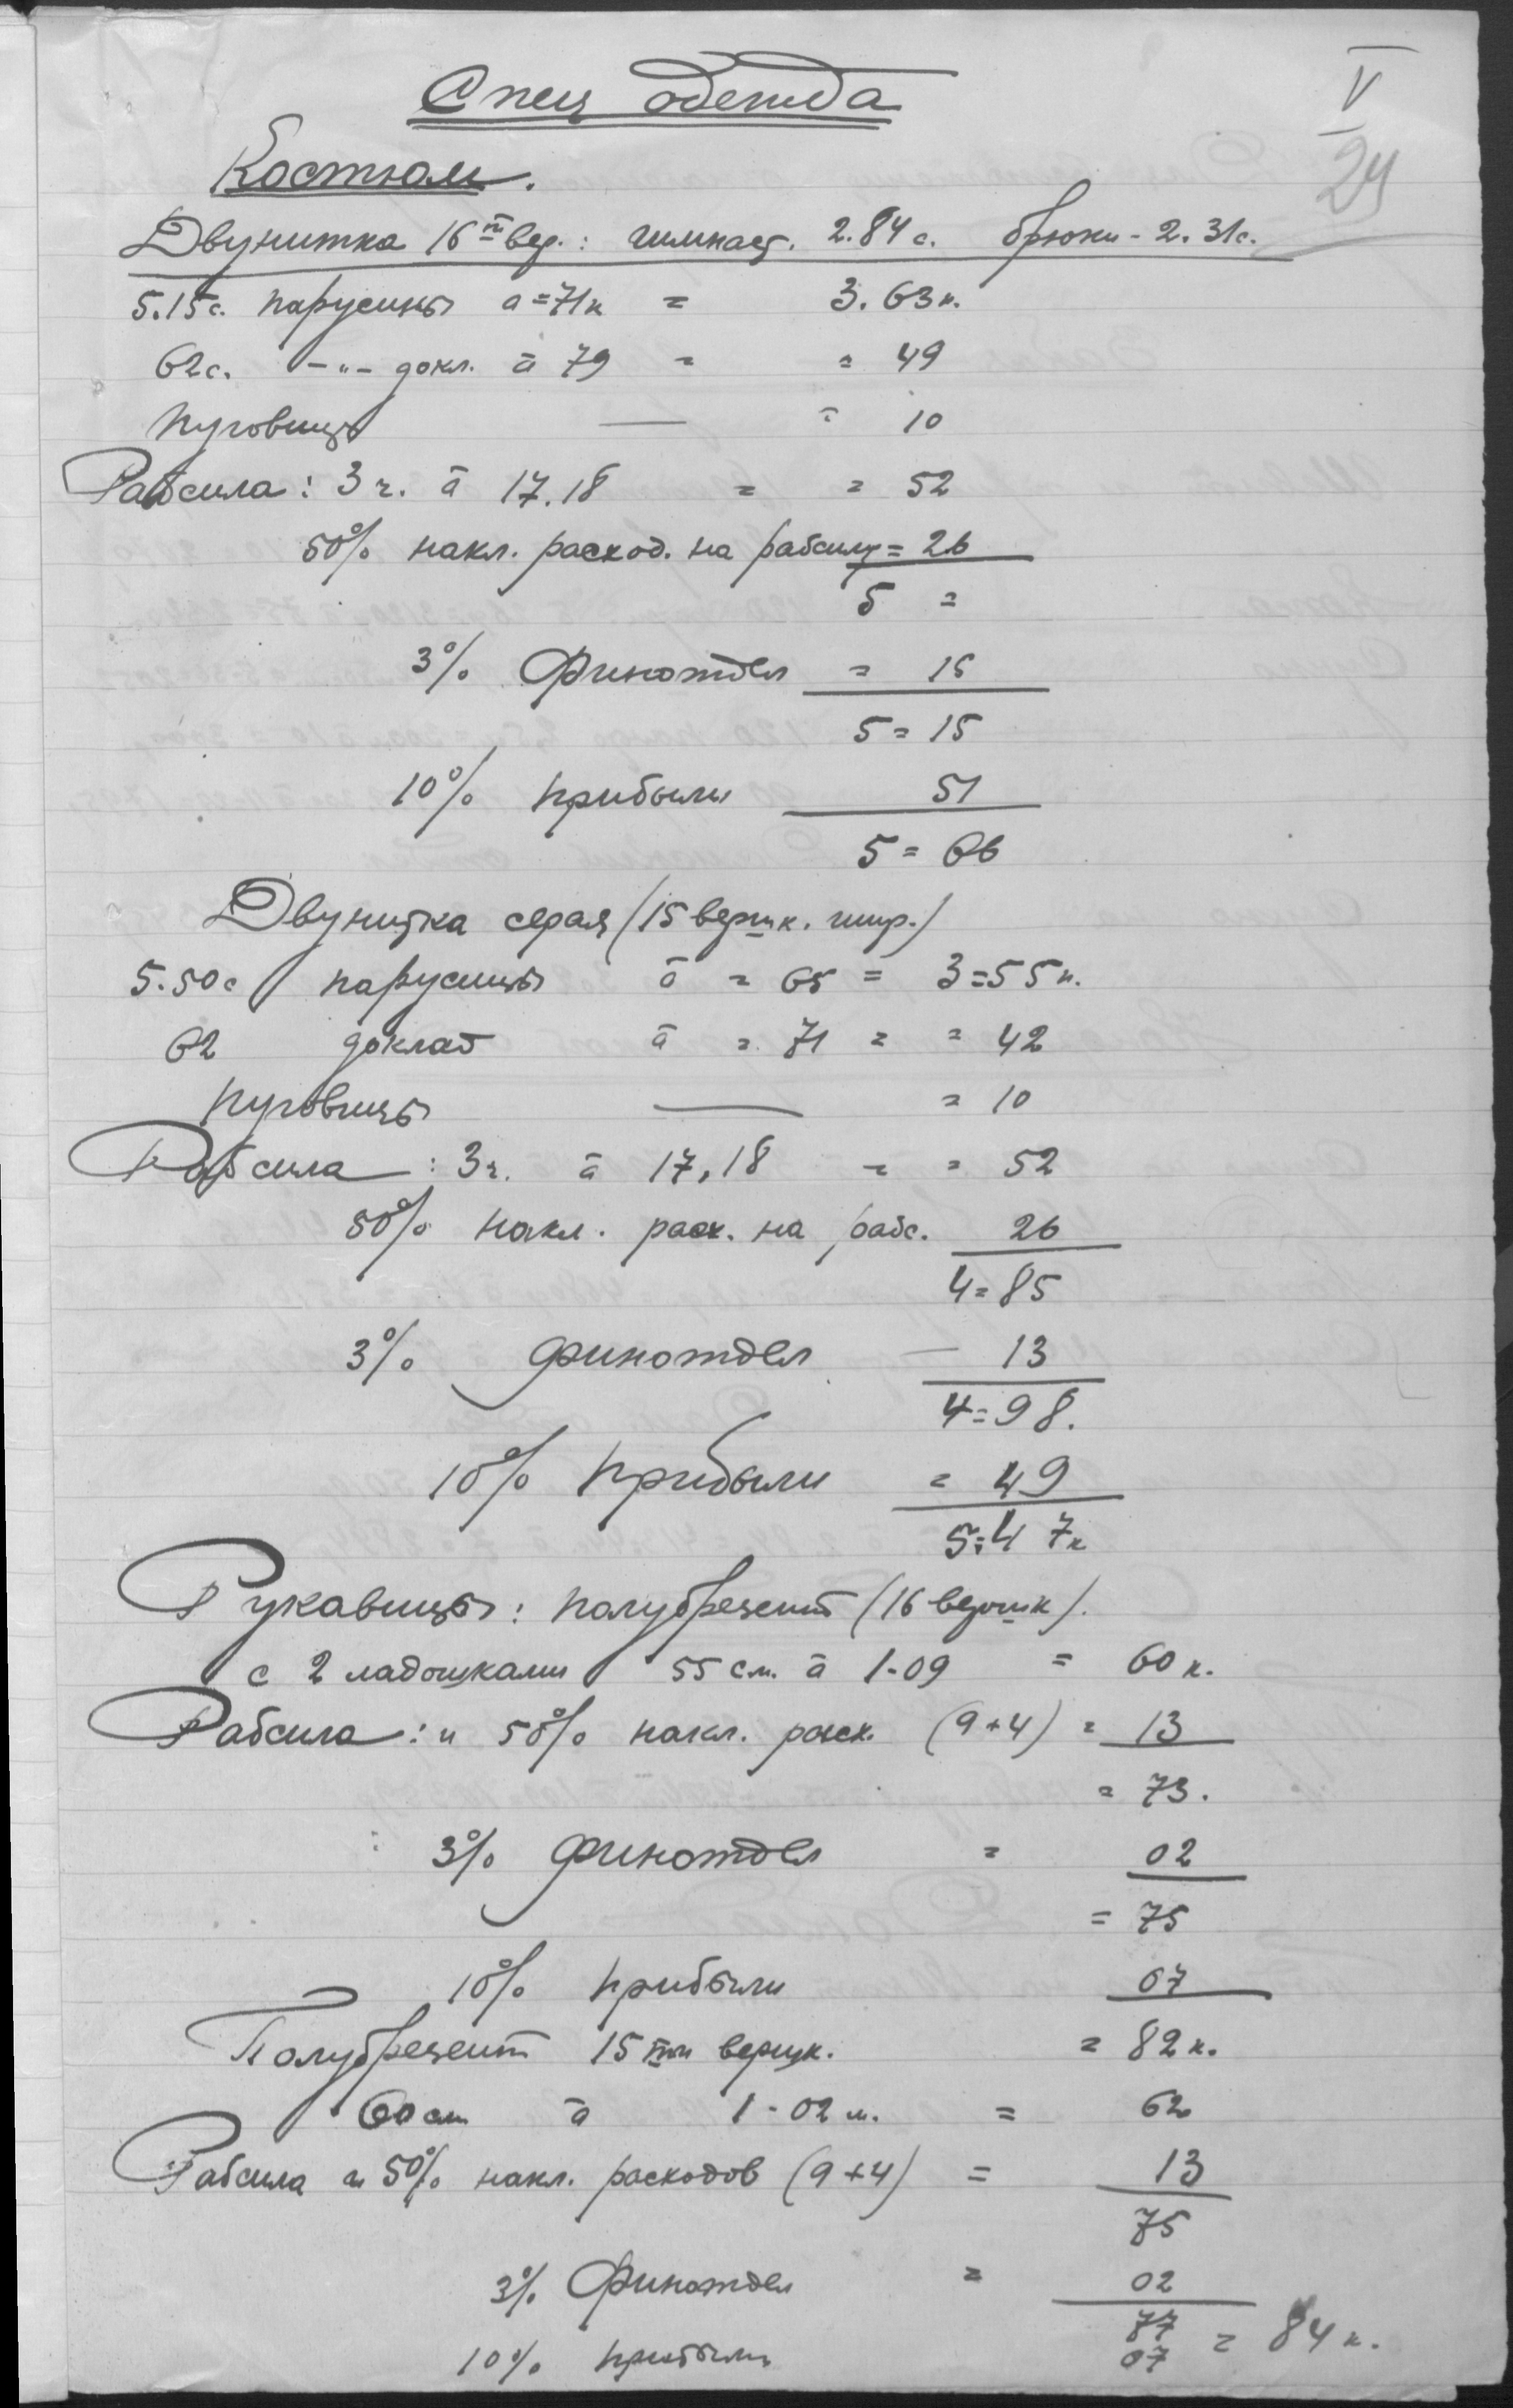 Спец одежда
V
24
Костюм.
Двунитка 16ти вер.: гимнаст. 2.84 с. брюки - 2.31 с.
5.15 с. парусины а = 71 к = 3.63 к.
62 с. -"- докл. а 79 = = 49
Пуговицы — = 10
Рабсила: 3 ч. а 17.18 = = 52
50% накл. расход. на рабсилу = 26
5 =
3% Финотдел = 15
5 = 15
10% прибыли 51
5 = 66
Двунитка серая (15 вершк. шир.)
5.50 с парусины а = 65 = 3 = 55 к.
62 доклад а = 71 = = 42
пуговицы — = 10
Рабсила: 3 ч. а 17,18 = = 52
50% накл. расх. на рабс. 26
4 = 85
3% финотдел — 13
4 = 98.
10% прибыли = 49
5 = 47 к
Рукавицы: полубрезент (16 вершк).
с 2 ладошками 55 см. а 1-09 = 60 к.
Рабсила: и 50% накл. расх. (9+4) = 13
= 73.
3% финотдел = 02
= 75
10% прибыли 07
Полубрезент 15ти вершк. = 82 к.
60 см а 1-02 м. = 62
Рабсила и 50% накл. расходов (9+4) = 13
75
3% Финотдел = 02
77 = 84 к.
10% прибыли 07